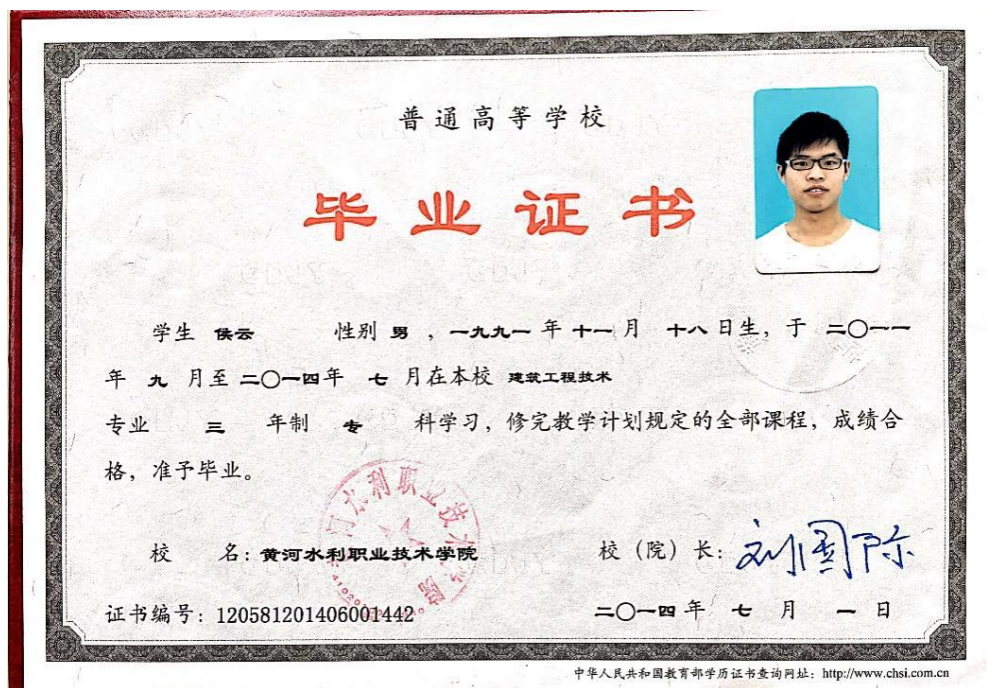 普通高等学校
毕业证书
学生 侯云 性别 男 ，一九九一 年 十一 月 十八 日生，于 二〇一一
年 九 月至 二〇一四年 七 月在本校 建筑工程技术
专业 三 年制 专 科学习，修完教学计划规定的全部课程，成绩合
格，准予毕业。
校 名：黄河水利职业技术学院
校（院）长：刘国际
证书编号：120581201406001442
二〇一四 年 七 月 一 日
中华人民共和国教育部学历证书查询网址：http://www.chsi.com.cn